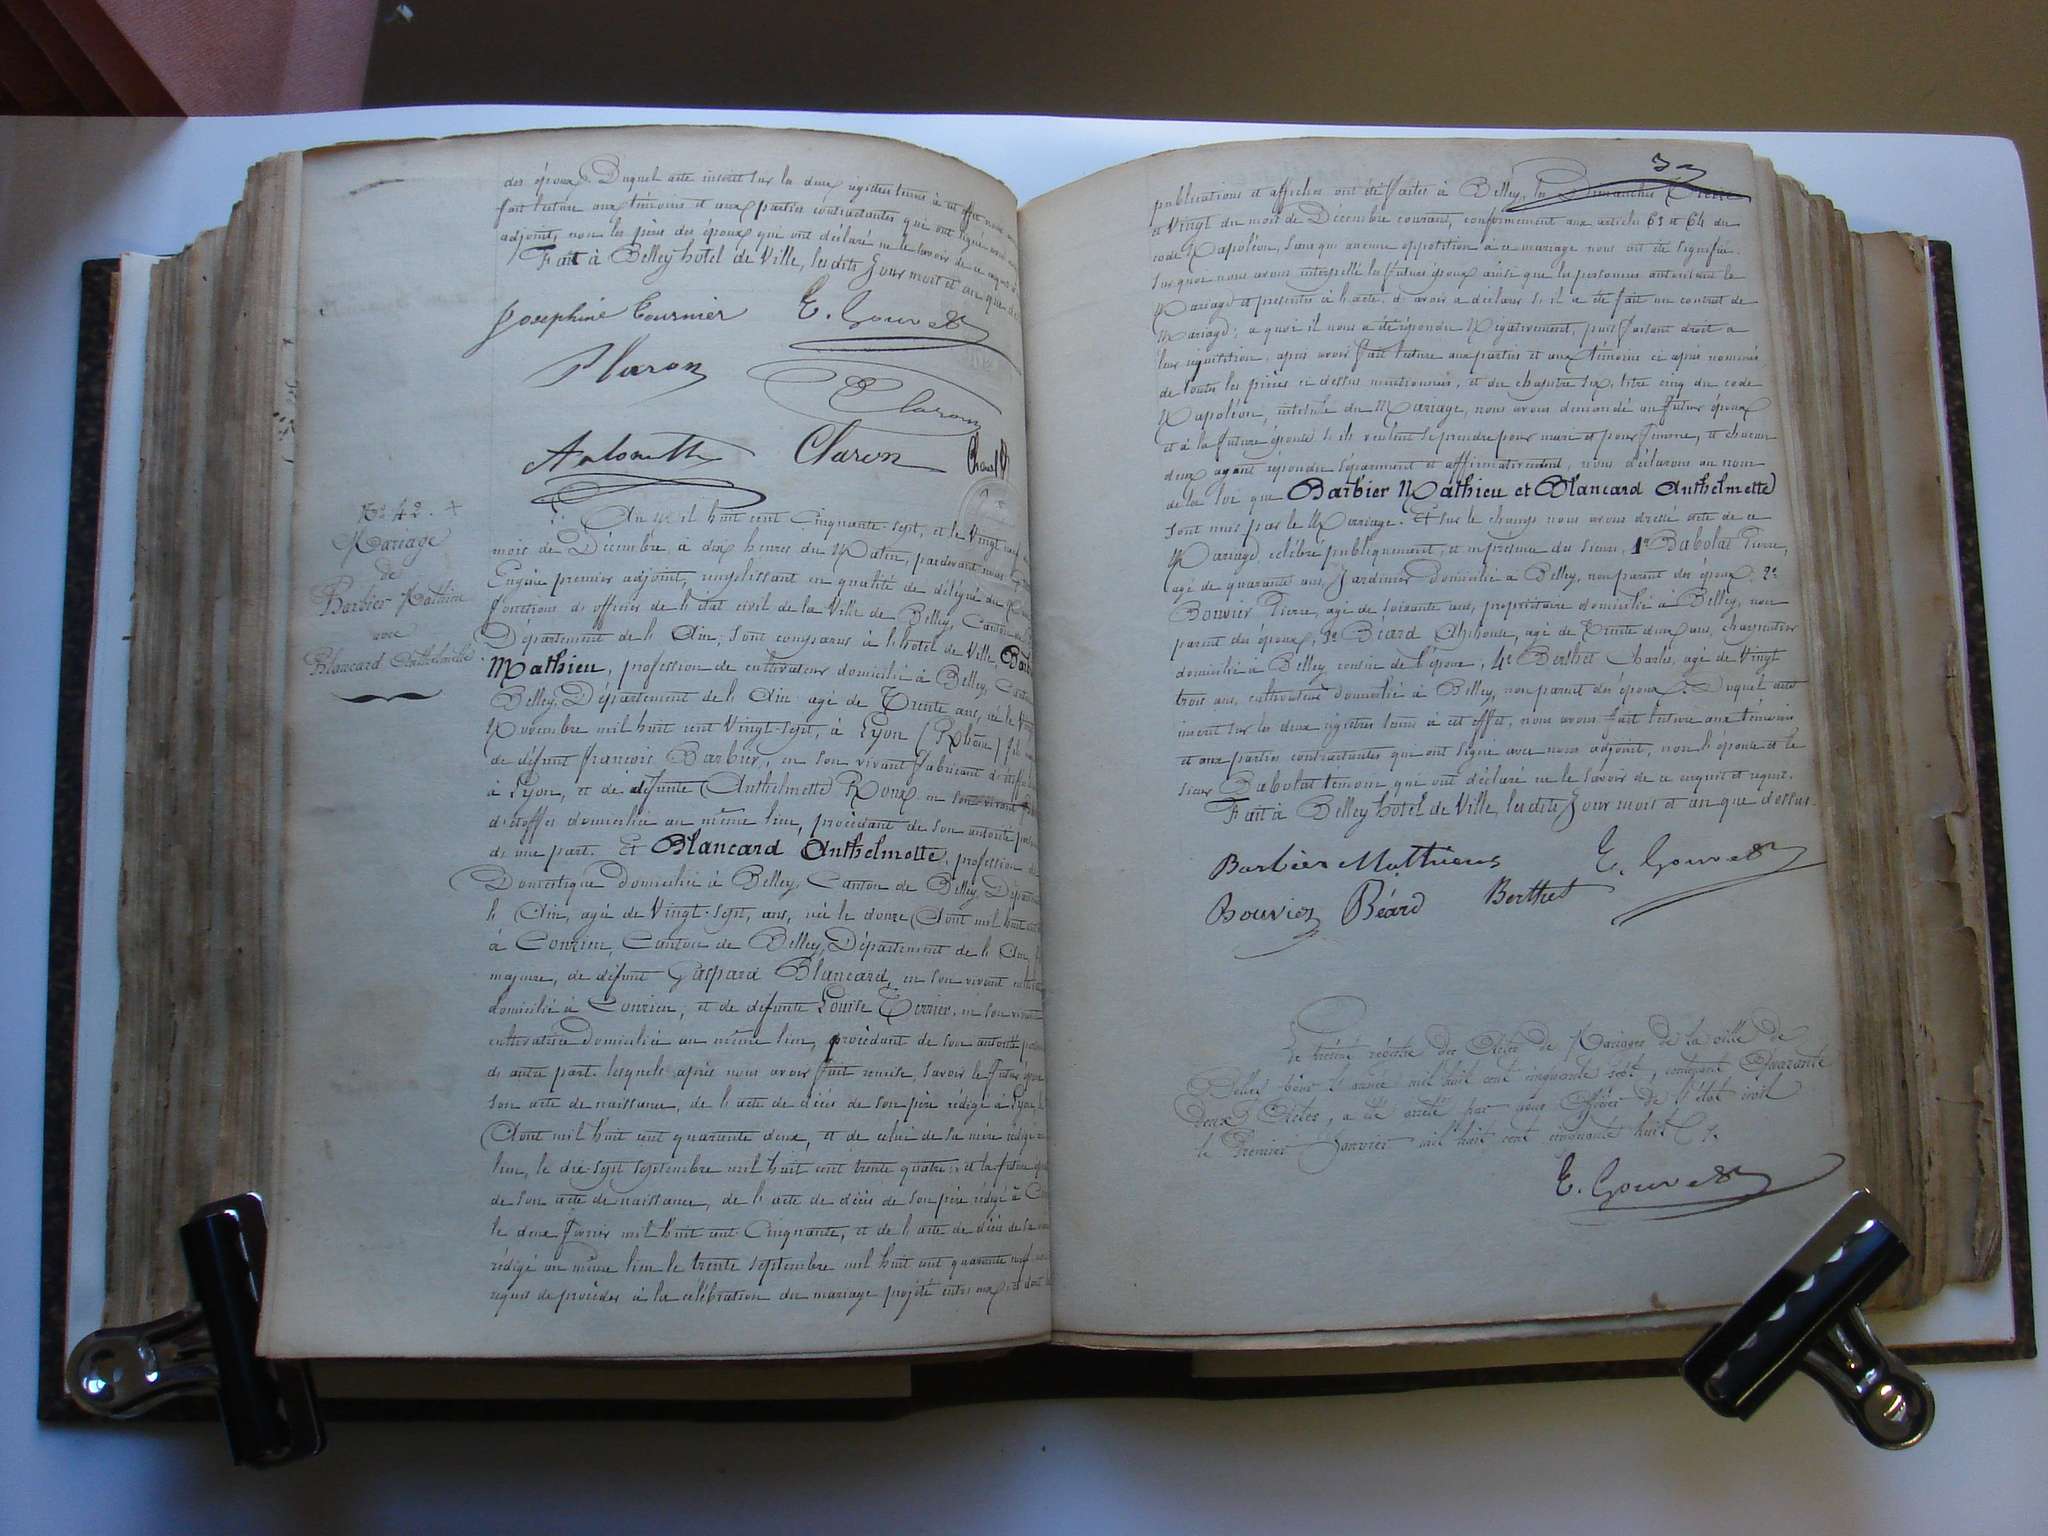 des époux. Duquel acte inscrit sur les deux registres tenus à cet effet nous avons
fait lecture aux témoins et aux parties contractantes qui ont signé avec nous
adjoint, non les pères des époux qui ont déclaré ne le savoir de ce enquis
Fait à Belley hotel de Ville, les dits Jour mois et an que
Josephine Tournier E. Gouvet
Claron
Claron
Antoinette Claron
N° 42. +
Mariage
de
Barbier Mathieu
avec
Blancard Anthelmette
An Mil huit cent Cinquante-sept, et le Vingt neuf
mois de Décembre, à dix heures du Matin, pardevant nous
Eugène premier adjoint, remplissant en qualité de délégué du
fonctions d'officier de l'état civil de la Ville de Belley, Canton de
Département de l'Ain; Sont comparus à l'hotel de Ville,
Mathieu, profession de cultivateur domicilié à Belley, Canton
Belley, Département de l'Ain agé de Trente ans, né le
Novembre mil huit cent Vingt-sept, à Lyon (Rhône) fils
de défunt françois Barbier, en son vivant fabricant d'étoffes
à Lyon, et de défunte Anthelmette Roux en son vivant
d'étoffes domiciliée au même lieu, procédant de son autorité
d'une part. Et Blancard Anthelmette, profession de
Domestique domiciliée à Belley, Canton de Belley, Département
l'Ain, agée de Vingt-sept, ans, née le douze Aout mil huit cent
à Conzieu, Canton de Belley, Département de l'Ain,
majeure, de défunt Gaspard Blancard, en son vivant
domicilié à Conzieu, et de défunte Louise Terrier, en son vivant
cultivatrice domiciliée au même lieu, procédant de son autorité
d'autre part. lesquels après nous avoir fait remise, Savoir le futur époux
son acte de naissance, de l'acte de décès de son père rédigé à Lyon le
Aout mil huit cent quarante deux, et de celui de sa mère rédigé
lieu, le dix-sept septembre mil huit cent trente quatre; et la future épouse
de son acte de naissance, de l'acte de décès de son père rédigé à
le douze février mil huit cent Cinquante, et de l'acte de décès de sa
rédigé au même lieu le trente septembre mil huit cent quarante neuf
requis de procéder à la célébration du mariage projeté entre eux, et dont les
publications et affiches ont été faites à Belley, les Dimanches Treize
et Vingt du mois de Décembre courant, conformément aux articles 63 et 64 du
code Napoléon, sans que aucune opposition à ce mariage nous ait été signifiée.
Sur quoi nous avons interpellé les futurs époux ainsi que les personnes autorisant le
Mariage et présentes à l'acte, d'avoir à déclarer s'il a été fait un contrat de
Mariage; à quoi il nous a été répondu Négativement, puis faisant droit à
leur réquisition, après avoir fait lecture aux parties et aux témoins ci après nommés
de toutes les pièces ci dessus mentionnées, et du chapitre six, titre cinq du code
Napoléon, intitulé du Mariage, nous avons demandé au futur époux
et à la future épouse s'ils veulent se prendre pour mari et pour femme, et chacun
deux ayant répondu séparément et affirmativement, nous déclarons au nom
de la loi que Barbier Mathieu et Blancard Anthelmette
sont unis par le Mariage. Et sur le champ nous avons dressé acte de ce
Mariage célébré publiquement, et en présence des sieurs, 1° Babolat Pierre,
agé de quarante ans, Jardinier domicilié à Belley, non parent des époux, 2°
Bouvier Pierre, agé de soixante ans, propriétaire domicilié à Belley, non
parent des époux, 3° Béard Alphonse, agé de Trente deux ans, charpentier
domicilié à Belley cousin de l'époux, 4° Berthet Charles, agé de Vingt
trois ans, cultivateur domicilié à Belley, non parent des époux. Duquel acte
inscrit sur les deux registres tenus à cet effet, nous avons fait lecture aux témoins
et aux parties contractantes qui ont signé avec nous adjoint, non l'épouse et le
sieur Babolat témoin qui ont déclaré ne le savoir de ce enquis et requis.
Fait à Belley hotel de Ville, les dits Jour mois et an que dessus.
Barbier Mathieus E. Gouvet
Bouvier Béard Berthet
Le présent registre des Actes de Mariages de la ville de
Belley pour l'année mil huit cent cinquante sept, contenant Quarante
deux Actes, a été arrêté par nous Officier de l'état civil
le Premier Janvier mil huit cent cinquante huit
E. Gouvet